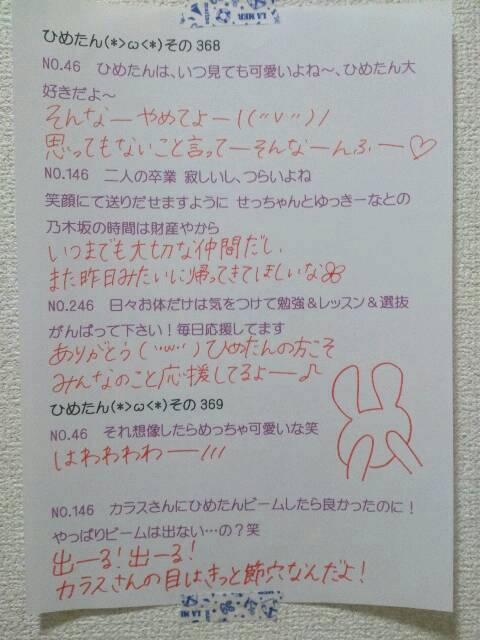 LA MER
ひめたん(*>ω<*)その368
NO.46 ひめたんは、いつ見ても可愛いよね～、ひめたん大
好きだよ～
そんなーやめてよー!(("v"))ノ
思ってもないこと言ってーそんなーんふー♡
NO.146 二人の卒業 寂しいし、つらいよね
笑顔にて送りだせますように せっちゃんとゆっきーなとの
乃木坂の時間は財産やから
いつまでも大切な仲間だし、
また昨日みたいに帰ってきてほしいな
NO.246 日々お体だけは気をつけて勉強&レッスン&選抜
がんばって下さい!毎日応援してます
ありがとう("ω")ひめたんの方こそ
みんなのこと応援してるよー♪
ひめたん(*>ω<*)その369
NO.46 それ想像したらめっちゃ可愛いな笑
はわわわわー///
NO.146 カラスさんにひめたんビームしたら良かったのに!
やっぱりビームは出ない…の?笑
出ーる!出ーる!
カラスさんの目はきっと節穴なんだよ!